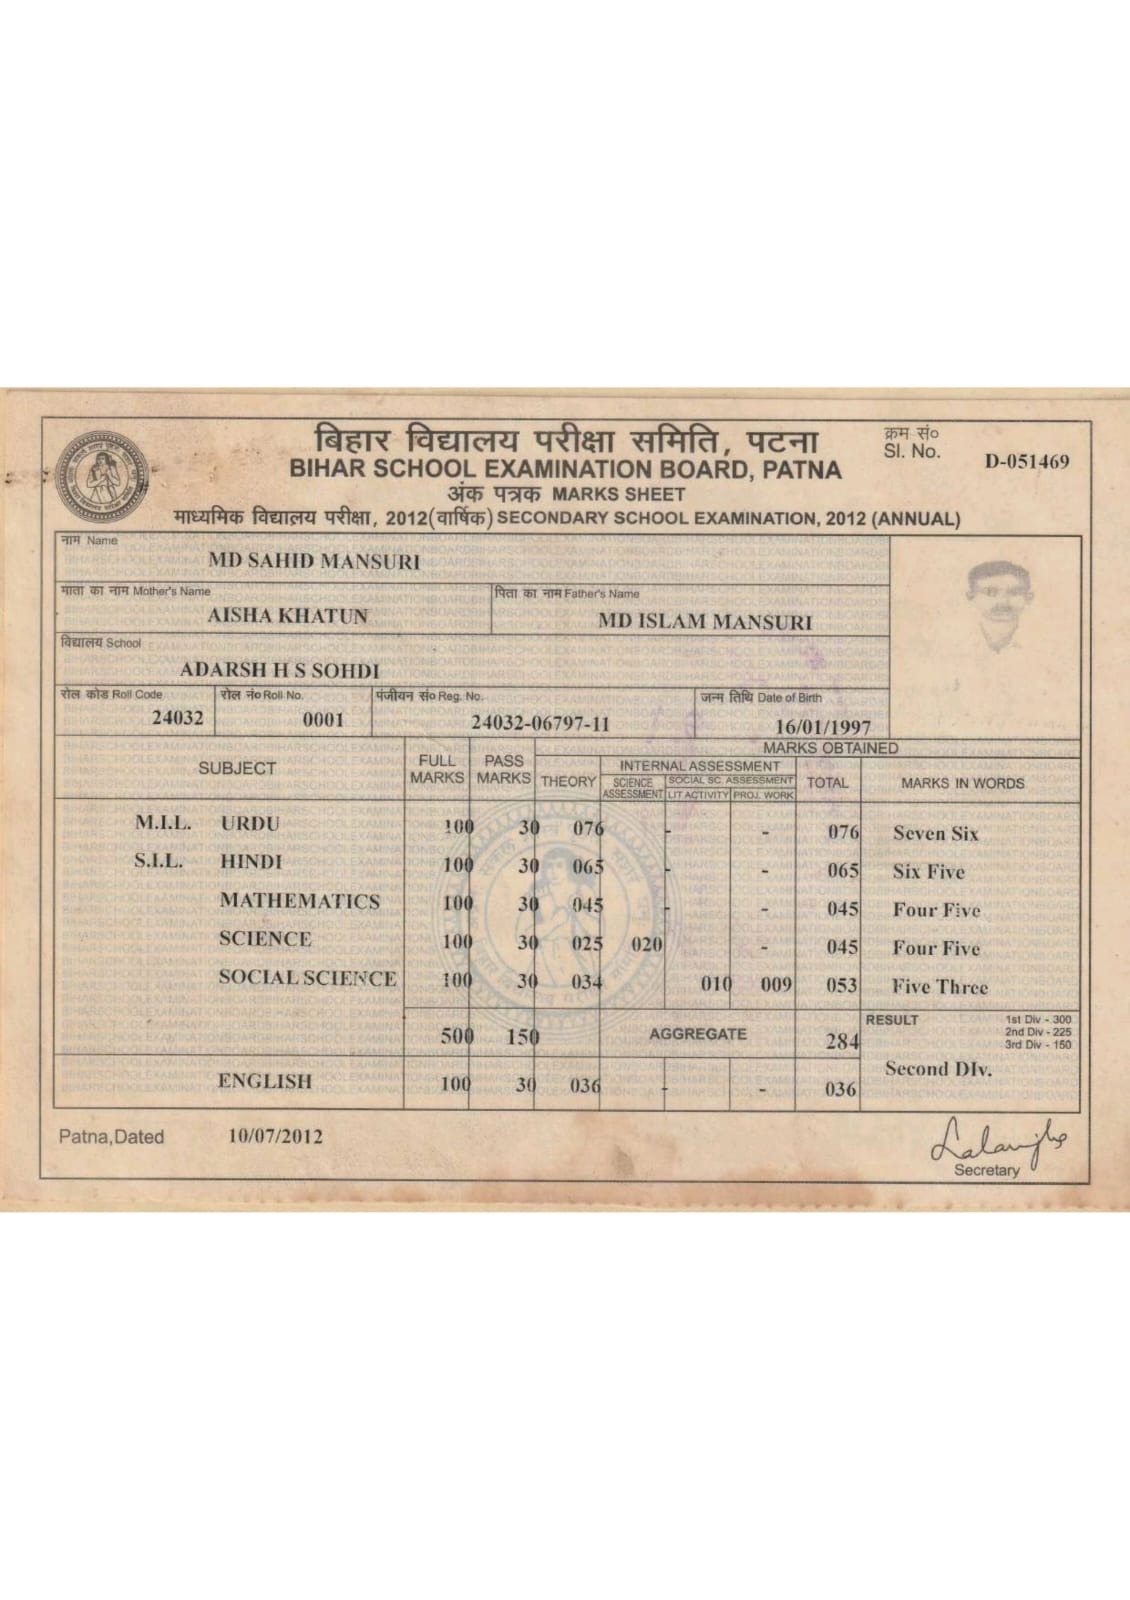 बिहार विद्यालय परीक्षा समिति, पटना
क्रम सं०
Sl. No. D-051469
BIHAR SCHOOL EXAMINATION BOARD, PATNA
अंक पत्रक MARKS SHEET
माध्यमिक विद्यालय परीक्षा, 2012(वार्षिक) SECONDARY SCHOOL EXAMINATION, 2012 (ANNUAL)
नाम Name
MD SAHID MANSURI
माता का नाम Mother's Name पिता का नाम Father's Name
AISHA KHATUN MD ISLAM MANSURI
विद्यालय School
ADARSH H S SOHDI
रोल कोड Roll Code रोल नं० Roll No. पंजीयन सं० Reg. No. जन्म तिथि Date of Birth
24032 0001 24032-06797-11 16/01/1997
MARKS OBTAINED
SUBJECT FULL MARKS PASS MARKS THEORY INTERNAL ASSESSMENT TOTAL MARKS IN WORDS
SCIENCE ASSESSMENT SOCIAL SC. ASSESSMENT
LIT ACTIVITY PROJ. WORK
M.I.L. URDU 100 30 076 - - 076 Seven Six
S.I.L. HINDI 100 30 065 - - 065 Six Five
MATHEMATICS 100 30 045 - - 045 Four Five
SCIENCE 100 30 025 020 - 045 Four Five
SOCIAL SCIENCE 100 30 034 010 009 053 Five Three
500 150 AGGREGATE 284
RESULT 1st Div - 300
2nd Div - 225
3rd Div - 150
Second DIv.
ENGLISH 100 30 036 - - 036
Patna,Dated 10/07/2012
Secretary